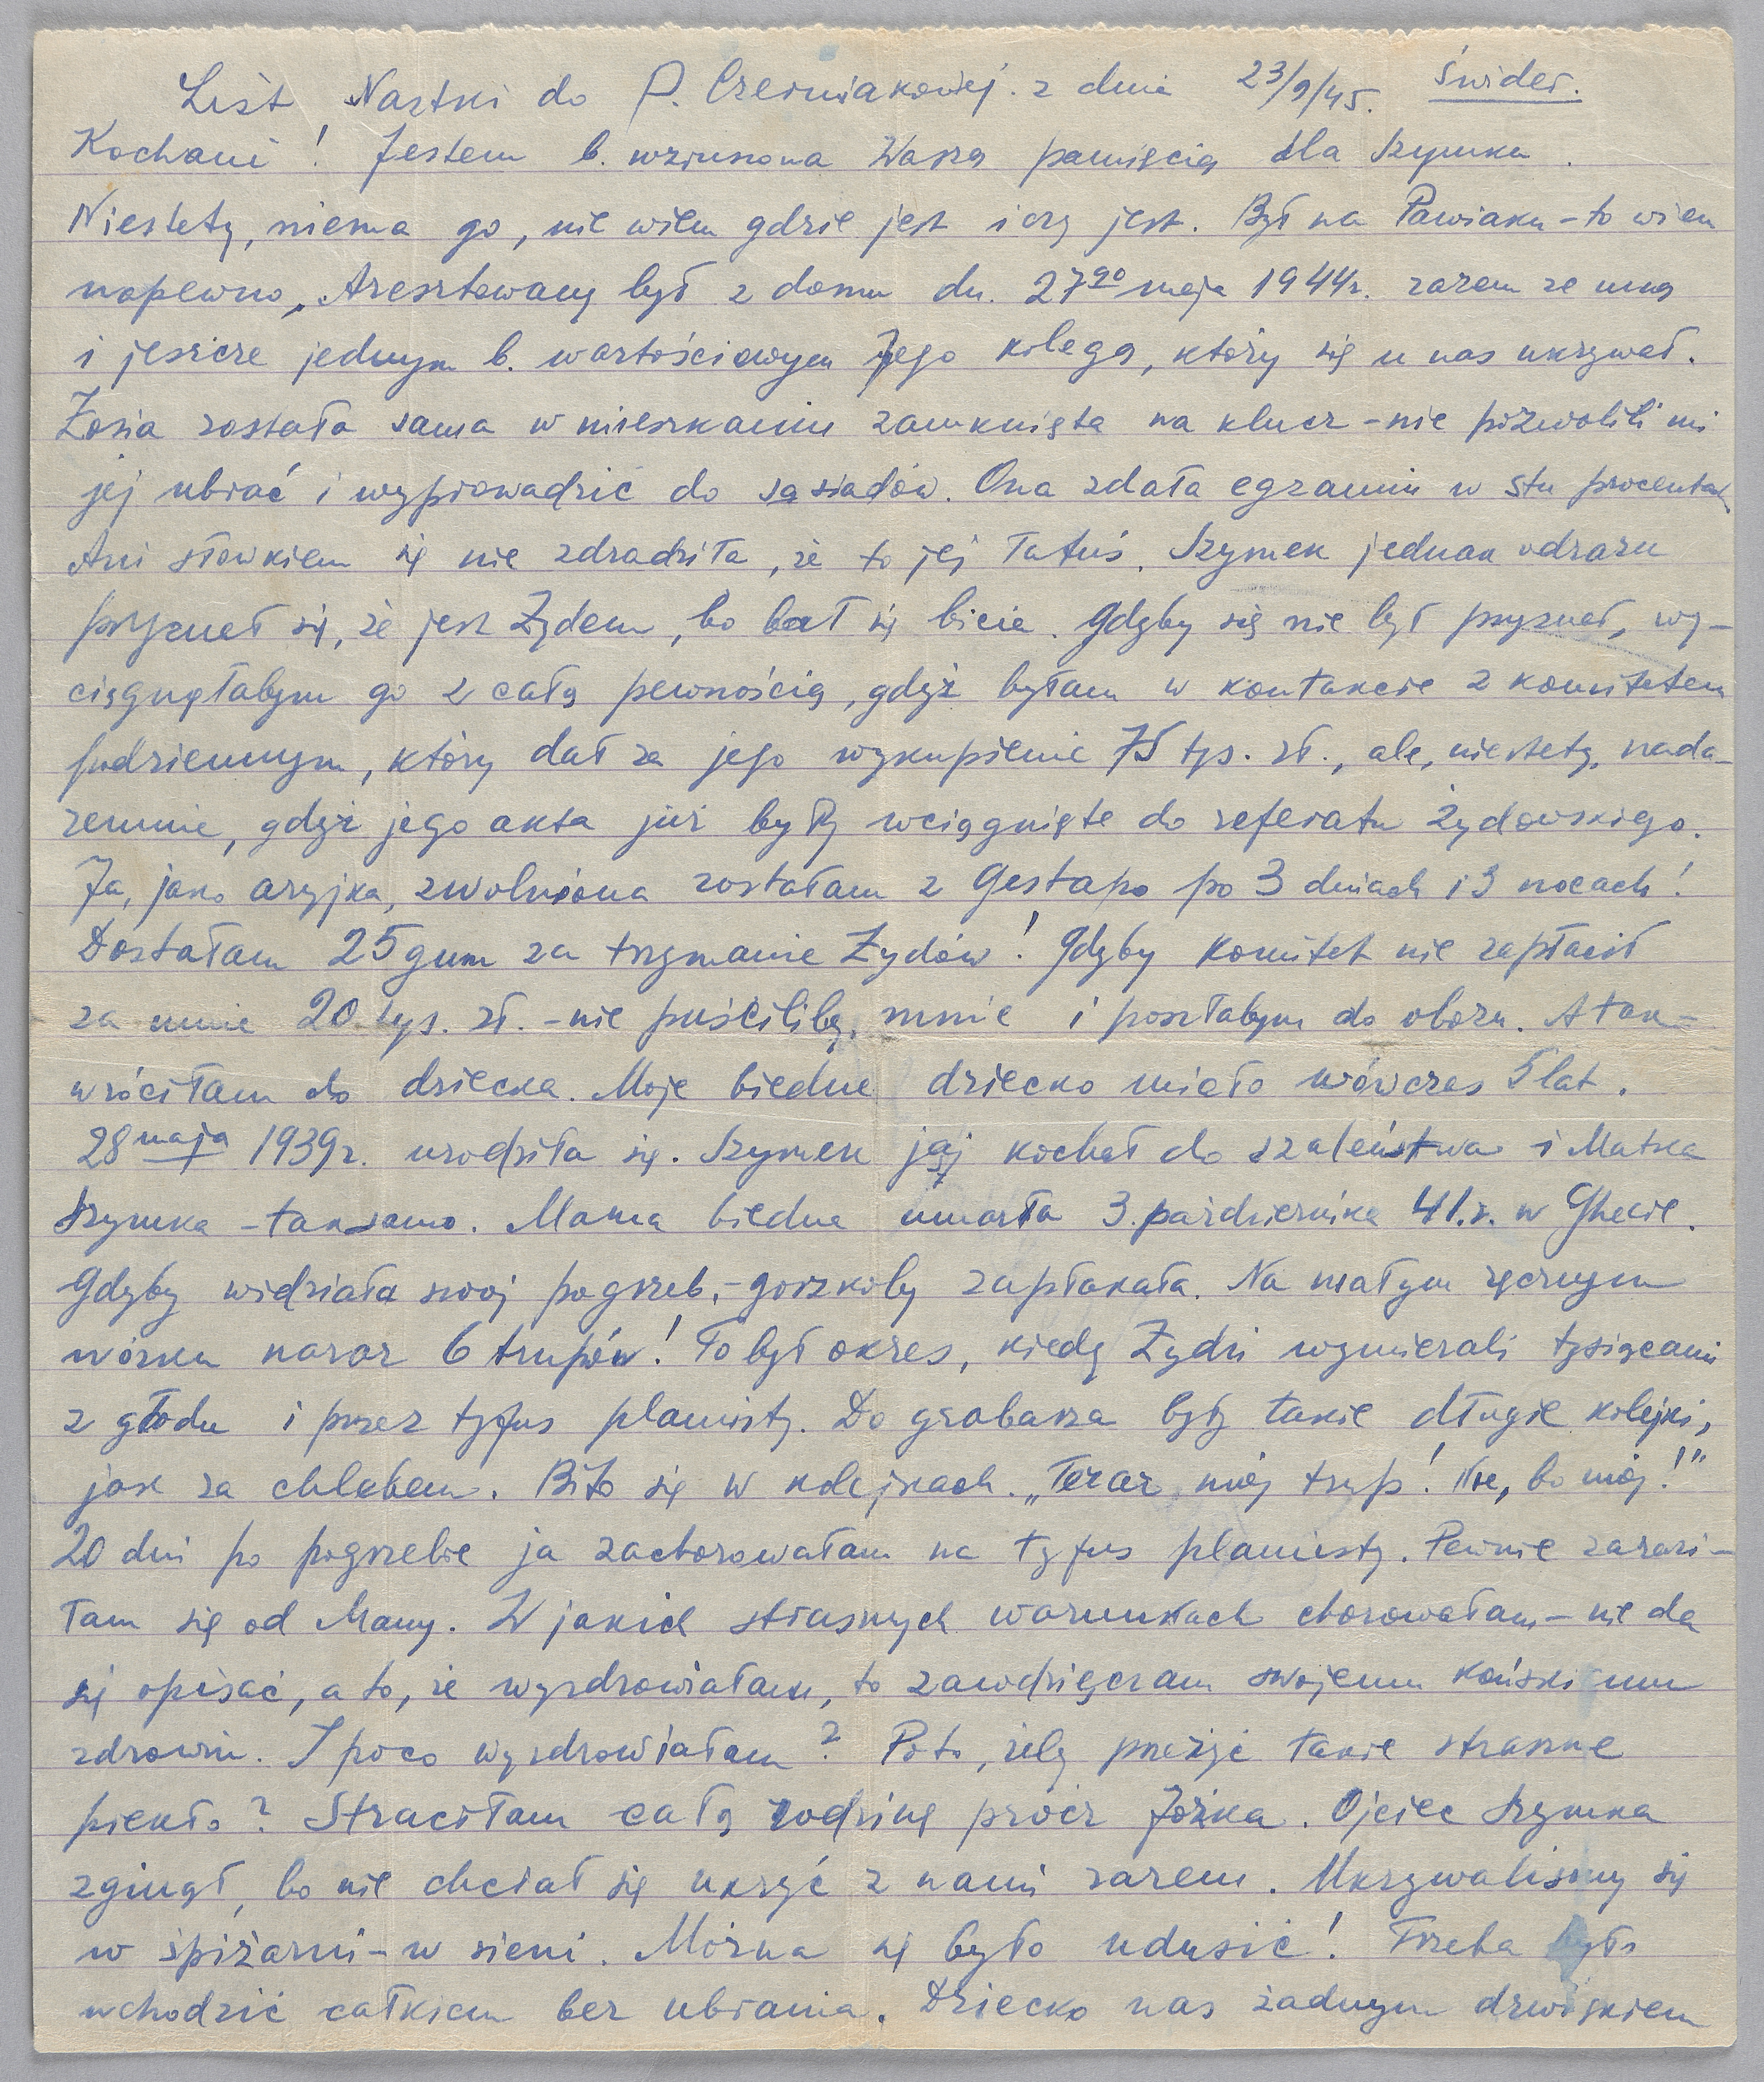 List Nastki do P. Czerniakowej. z dnia 23/9/45. Świder.
Kochani! Jestem b. wzruszona Waszą pamięcią dla Szymka.
Niestety, niema go, nie wiem gdzie jest i czy jest. Był na Pawiaku – to wiem
napewno. Aresztowany był z domu dn. 27go maja 1944r. razem ze mną
i jeszcze jednym b. wartościowym Jego kolegą, który się u nas ukrywał.
Zosia została sama w mieszkaniu zamknięta na klucz – nie pozwolili mi
jej ubrać i wyprowadzić do sąsiadów. Ona zdała egzamin w stu procentach
Ani słówkiem się nie zdradziła, że to jej Tatuś. Szymek jednak odrazu
przyznał się, że jest Żydem, bo bał się bicia. Gdyby się nie był przyznał, wy-
ciągnęłabym go z całą pewnością, gdyż byłam w kontakcie z komitetem
podziemnym, który dał za jego wykupienie 75 tys. zł., ale, niestety, nada-
remnie, gdyż jego akta już były wciągnięte do referatu żydowskiego.
Ja, jako aryjka, zwolniona zostałam z Gestapo po 3 dniach i 3 nocach!
Dostałam 25 gum za trzymanie Żydów! Gdyby Komitet nie zapłacił
za mnie 20 tys. zł. – nie puściliby mnie i poszłabym do obozu. A tak –
wróciłam do dziecka. Moje biedne dziecko miało wówczas 5 lat.
28 maja 1939r. urodziła się. Szymek ją kochał do szaleństwa i Matka
Szymka – taksamo. Mama biedna umarła 3. października 41.r. w Ghecie.
Gdyby widziała swój pogrzeb, – gorzkoby zapłakała. Na małym ręcznym
wózku naraz 6 trupów! To był okres, kiedy Żydzi wymierali tysiącami
z głodu i przez tyfus plamisty. Do grabarza były takie długie kolejki,
jak za chlebem. Bito się w kolejkach. „Teraz mój trup! Nie, bo mój!"
20 dni po pogrzebie ja zachorowałam na tyfus plamisty. Pewnie zarazi-
łam się od Mamy. W jakich strasznych warunkach chorowałam – nie da
się opisać, a to, że wyzdrowiałam, to zawdzięczam swojemu końskiemu
zdrowiu. I poco wyzdrowiałam? Poto, żeby przeżyć takie straszne
piekło? Straciłam całą rodzinę prócz Józka. Ojciec Szymka
zginął, bo nie chciał się ukryć z nami razem. Ukrywaliśmy się
w spiżarni – w sieni. Można się było udusić! Trzeba było
wchodzić całkiem bez ubrania. Dziecko nas żadnym dźwiękiem